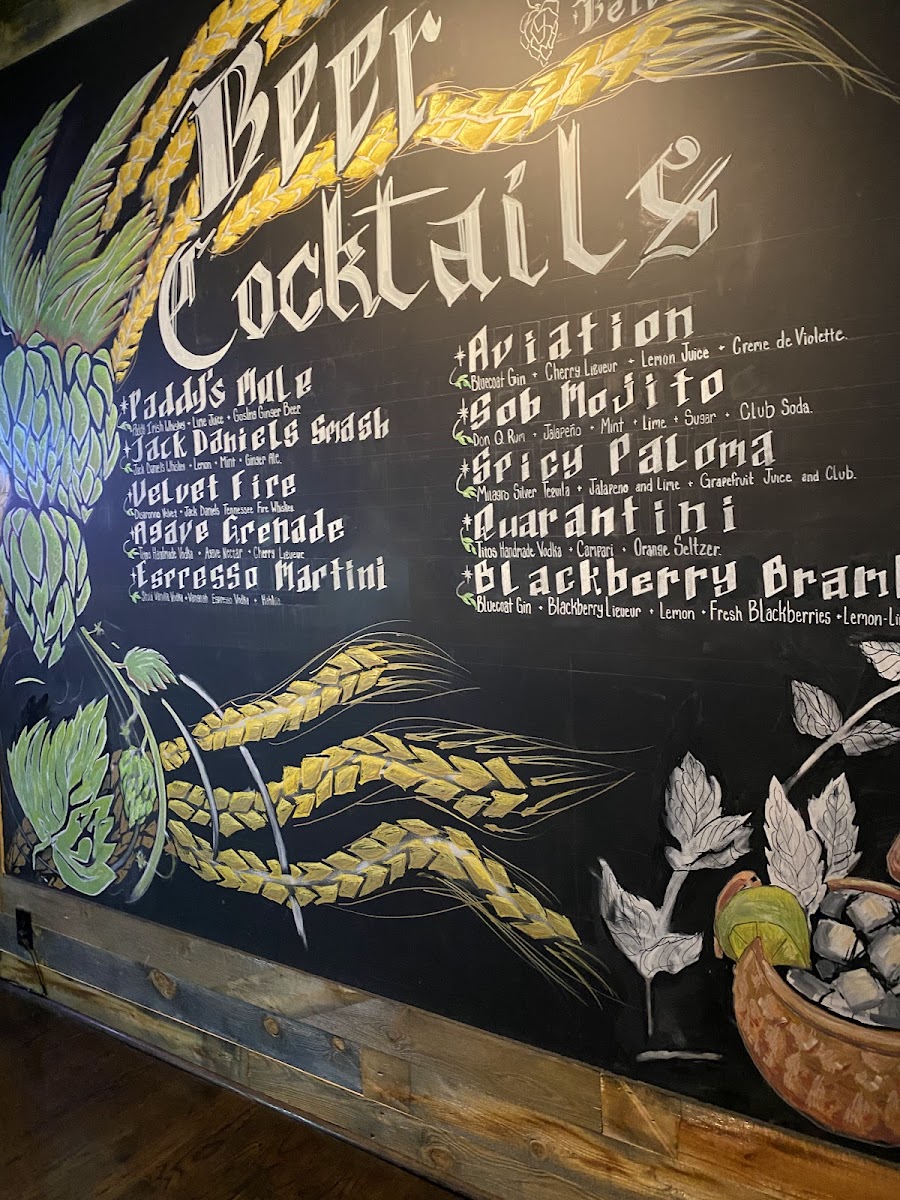 Beer
Cocktails
Paddy's Mule
Paddy Irish Whiskey • Lime Juice • Goslins Ginger Beer
Jack Daniels Smash
Jack Daniels Whiskey • Lemon • Mint • Ginger Ale.
Velvet Fire
Disaronno Velvet • Jack Daniels Tennessee Fire Whiskey
Agave Grenade
Titos Handmade Vodka • Agave Nectar • Cherry Liqueur
Espresso Martini
Stoli Vanilla Vodka • Espresso Vodka • Kahlua.
Aviation
Bluecoat Gin + Cherry Liqueur + Lemon Juice + Creme de Violette.
Sob Mojito
Don Q Rum + Jalapeño + Mint + Lime + Sugar + Club Soda.
Spicy Paloma
Milagro Silver Tequila + Jalapeno and Lime + Grapefruit Juice and Club.
Quarantini
Titos Handmade Vodka + Campari + Orange Seltzer.
Blackberry
Bluecoat Gin + Blackberry Liqueur + Lemon + Fresh Blackberries +